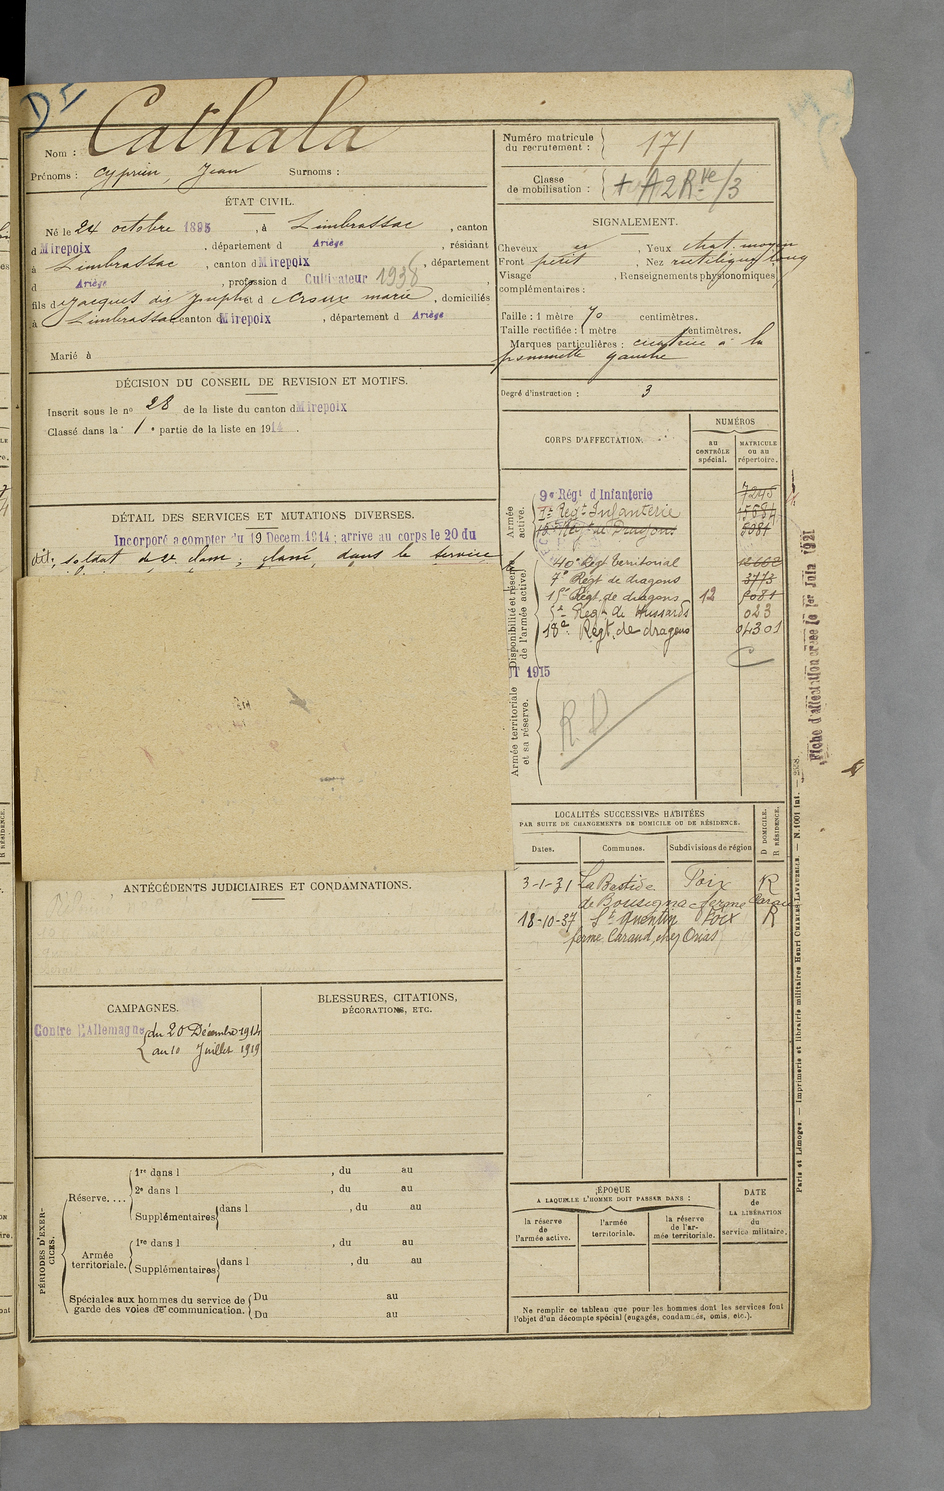 DI
Nom : Cathala
Prénoms : Cyprien, Jean Surnoms :
ÉTAT CIVIL.
Né le 24 octobre 1895, à Limbrassac, canton
d Mirepoix, département d Ariège, résidant
à Limbrassac, canton d Mirepoix, département
d Ariège, profession d Cultivateur 1938,
fils d Jacques dit Joseph et d marie, domiciliés
à Limbrassac canton d Mirepoix, département d Ariège
Marié à
DÉCISION DU CONSEIL DE REVISION ET MOTIFS.
Inscrit sous le no 28 de la liste du canton d Mirepoix
Classé dans la 1e partie de la liste en 1914.
DÉTAIL DES SERVICES ET MUTATIONS DIVERSES.
Incorporé a compter du 19 Décem. 1914 ; arrive au corps le 20 du
dit, soldat de 2e classe ; classé, dans le service
ANTÉCÉDENTS JUDICIAIRES ET CONDAMNATIONS.
CAMPAGNES.
Contre l'Allemagne du 20 Décembre 1914
au 10 Juillet 1919
BLESSURES, CITATIONS,
DÉCORATIONS, ETC.
PÉRIODES D'EXERCICES.
Réserve....
1re dans l , du au
2e dans l , du au
Supplémentaires dans l , du au
Armée
territoriale.
1re dans l , du au
Supplémentaires dans l , du au
Spéciales aux hommes du service de
garde des voies de communication.
Du au
Du au
Numéro matricule
du recrutement : 171
Classe
de mobilisation : + A2Rve/3
SIGNALEMENT.
Cheveux , Yeux chat. moyen
Front petit , Nez rectiligne long
Visage , Renseignements physionomiques
complémentaires :
Taille : 1 mètre 70 centimètres.
Taille rectifiée : 1 mètre centimètres.
Marques particulières : cicatrice à la
pommette gauche
Degré d'instruction : 3
CORPS D'AFFECTATION.
NUMÉROS
AU
CONTRÔLE
spécial.
MATRICULE
ou au
répertoire.
Armée
active.
9e Régt d'Infanterie 7245
7e Régt Infanterie
Régt de Dragons
Disponibilité et réserve
de l'armée active.
40e Régt territorial
7e Régt de dragons 3773
15e Régt de dragons 12 5081
5e Régt de Hussards 023
18e Régt. de dragons 04301
C
T 1915
Armée territoriale
et sa réserve.
R.D
Fiche d'affectation créée le 1er Juin 1921
LOCALITÉS SUCCESSIVES HABITÉES
PAR SUITE DE CHANGEMENTS DE DOMICILE OU DE RÉSIDENCE.
Dates.
Communes.
Subdivisions de région
D DOMICILE.
R RÉSIDENCE.
3-1-31 La Bastide Foix R
de Bousignac ferme Caraud
18-10-37 St Quentin Foix R
ferme Caraud, chez Orias
ÉPOQUE
A LAQUELLE L'HOMME DOIT PASSER DANS :
la réserve
de
l'armée active.
l'armée
territoriale.
la réserve
de l'ar-
mée territoriale.
DATE
de
LA LIBÉRATION
du
service militaire.
Ne remplir ce tableau que pour les hommes dont les services font
l'objet d'un décompte spécial (engagés, condamnés, omis, etc.).
Paris et Limoges. — Imprimerie et librairie militaires Henri CHARLES-LAVAUZELLE. — N. 1001 int.